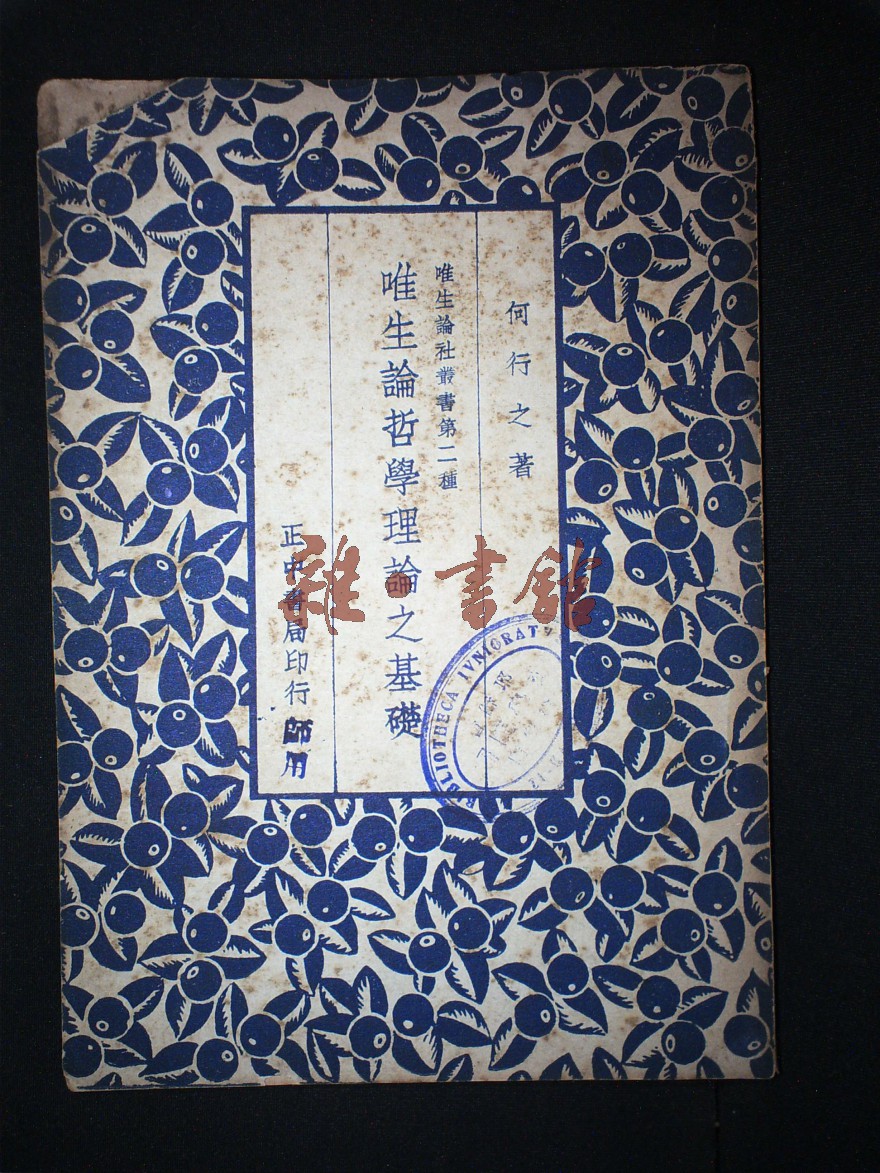 何行之著
唯生論社叢書第二種
唯生論哲學理論之基礎
正中書局印行
師用
雜·書館
BIBLIOTHECA IVNIORAT